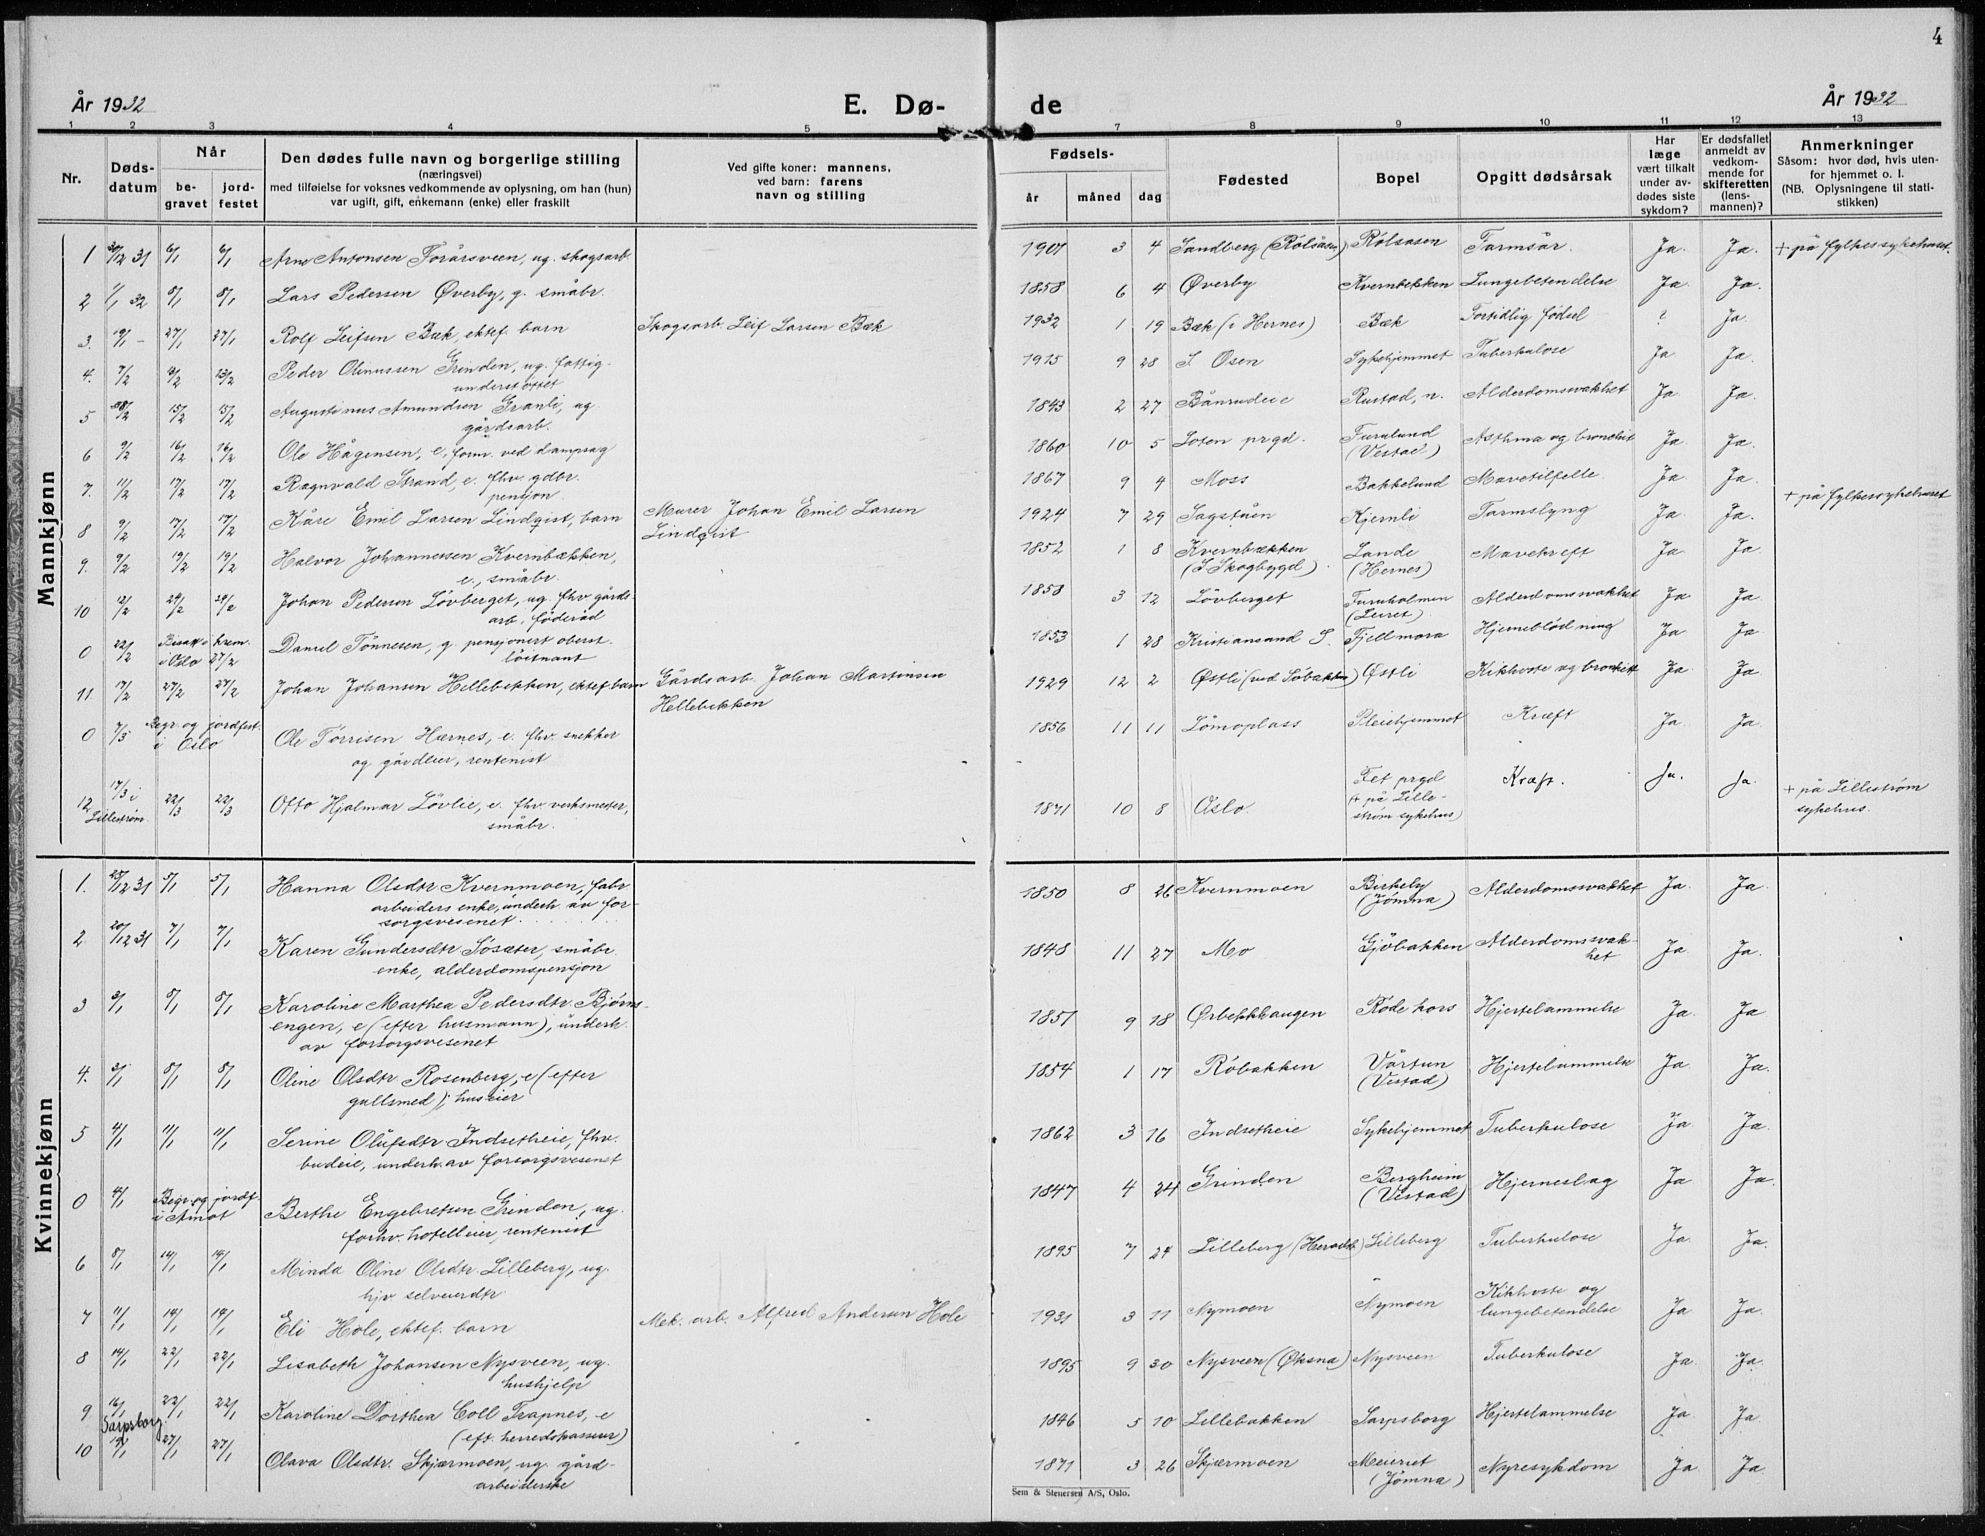 4
År 1932
E. Dø- de
År 1932
1 2 3 4 5 7 8 9 10 11 12 13
Nr.
Døds-
datum
Når
be-
gravet
jord-
festet
Den dødes fulle navn og borgerlige stilling
(næringsvei)
med tilføielse for voksnes vedkommende av oplysning, om han (hun)
var ugift, gift, enkemann (enke) eller fraskilt
Ved gifte koner: mannens,
ved barn: farens
navn og stilling
Fødsels-
år måned dag
Fødested
Bopel
Opgitt dødsårsak
Har
læge
vært tilkalt
under av-
dødes siste
sykdom?
Er dødsfallet
anmeldt av
vedkom-
mende for
skifteretten
(lens-
mannen)?
Anmerkninger
Såsom: hvor død, hvis uten-
for hjemmet o. l.
(NB. Oplysningene til stati-
stikken)
Mannkjønn
1 30/12 31 6/1 6/1 Arne Antonsen Torårsveen, ug. skogsarb. 1907 3 4 Sandberg (Rølsåsen) Rølsåsen Tarmsår. Ja. Ja. + på fylkessykehuset.
2 1/1 32 8/1 8/1 Lars Pedersen Øverby, g. småbr. 1858 6 4 Øverby Kvernbekken Lungebetendelse Ja. Ja.
3. 19/1 – 27/1 27/1 Rolf Leifsen Bæk, ektef. barn Skogsarb. Leif Larsen Bæk 1932 1 19 Bæk (i Hernes) Bæk Fortidlig fødsel ? Ja.
4. 7/2 13/2 Peder Olinussen Grinden, ug. fattig-
understøttet 1915 9 28 S. Osen Sykehjemmet Tuberkulose Ja. Ja.
5 8/2 15/2 15/2 Augustinus Amundsen Granli, ug.
gårdsarb. 1843 2 27 Bånrudeie Rustad, n. Alderdomsvakhet Ja. Ja.
6 9/2 16/2 16/2 Ole Hågensen, e, form. ved dampsag 1860 10 5 Løten prgd. Furulund
(Vestad) Asthma og bronchit Ja. Ja.
7. 11/2 17/2 17/2 Ragnvald Strand, e. fhv. gdbr.
pensjon. 1867 9 4 Moss Bakkelund Mavetilfelle Ja. Ja.
8 9/2 17/2 17/2 Kåre Emil Larsen Lindqist, barn Murer Johan Emil Larsen
Lindqist 1924 7 29 Sagstuen Kjernli Tarmslyng Ja. Ja. + på fylkessykehuset
9. 9/2 19/2 19/2 Halvor Johannessen Kvernbækken,
e., småbr. 1852 1 8 Kvernbækken
(S. Skogbygd) Lande
(Hernes) Mavekreft Ja. Ja.
10 12/2 24/2 24/2 Johan Pedersen Løvberget, ug. fhv gårds-
arb., føderåd 1858 3 12 Løvberget Furuholmen
(Leiret) Alderdomsvakhet Ja. Ja.
0 22/2 Bisatt o krem.
i Oslo 27/2 Daniel Tønnesen, g. pensjonert oberst-
løitnant 1853 1 28 Kristiansand S. Fjellmora Hjerneblødning Ja. Ja.
11. 17/2 27/2 27/2 Johan Johansen Hellebekken, ektef. barn Gårdsarb. Johan Martinsen
Hellebekken 1929 12 2 Østli (ved Søbakken) Østli Kikhoste og bronkitt Ja Ja.
0 7/3 Begr. og jordfest.
i Oslo Ole Torrisen Hærnes, e. fhv. snekker
og gårdeier, rentenist 1856 11 11 Lømoplass Pleiehjemmet Kræft Ja Ja.
12. 17/3 i
Lillestrøm 22/3 22/3 Otto Hjalmar Løvlie, e. fhv. verksmester,
småbr. 1871 10 8 Oslo. Fet prgd
(+ på Lille-
strøm sykehus) Kræft. Ja. Ja. + på Lillestrøm
sykehus.
Kvinnekjønn
1. 25/12 31 5/1 5/1 Hanna Olsdtr Kvernmoen, fabr.
arbeiders enke, underh. av for-
sorgsvesenet. 1850 8 26 Kvernmoen Birkely
(Jømna) Alderdomsvakhet Ja. Ja.
2. 20/12 31 7/1 7/1 Karen Gundersdtr Søsæter, småbr.
enke, alderdomspensjon 1848 11 27 Mo Gjøbakken Alderdomsvak-
het Ja. Ja.
3 3/1 8/1 8/1 Karoline Marthea Pedersdtr. Bjørns-
engen, e (efter husmann), underh.
av forsorgsvesenet 1851 9 18 Ørbekkhaugen Røde kors Hjertelammelse Ja. Ja.
4. 3/1 8/1 8/1 Oline Olsdtr Rosenberg, e (efter
gullsmed), huseier 1854 1 17 Røbakken Vårtun
(Vestad) Hjertelammelse Ja Ja.
5 4/1 11/1 11/1 Serine Olufsdtr Indsetheie, fhv.
budeie, underh. av forsorgsvesenet 1862 3 16 Indsetheie Sykehjemmet Tuberkulose Ja. Ja.
0 4/1 Begr. og jordf.
i Åmot Berthe Engebretsen Grinden, ug.
forhv. hotelleier, rentenist 1847 4 24 Grinden Bergheim
(Vestad) Hjerneslag Ja Ja.
6 8/1 14/1 14/1 Minda Oline Olsdtr. Lilleberg, ug.
hjv selveierdtr 1895 7 24 Lilleberg Lilleberg Tuberkulose Ja. Ja.
7 11/1 14/1 14/1 Eli Hole, ektef. barn Mek. arb. Alfred Andersen Hole 1931 3 11 Nymoen Nymoen Kikhoste og
lungebetendelse Ja Ja.
8 14/1 22/1 22/1 Lisabeth Johansen Nysveen, ug.
hushjelp 1895 9 30 Nysveen (Øksna) Nysveen Tuberkulose Ja. Ja.
9 16/1
Sarpsborg 22/1 22/1 Karoline Dorthea Coll Trapnes, e
(eft. herredskasserer) 1846 5 10 Lillebakken Sarpsborg Hjertelammelse Ja. Ja.
10 19/1 27/1 27/1 Olava Olsdtr. Skjærmoen, ug. gård-
arbeiderske 1871 3 26 Skjærmoen Meieriet
(Jømna) Nyresykdom Ja Ja.
Sem & Stenersen A/S, Oslo.